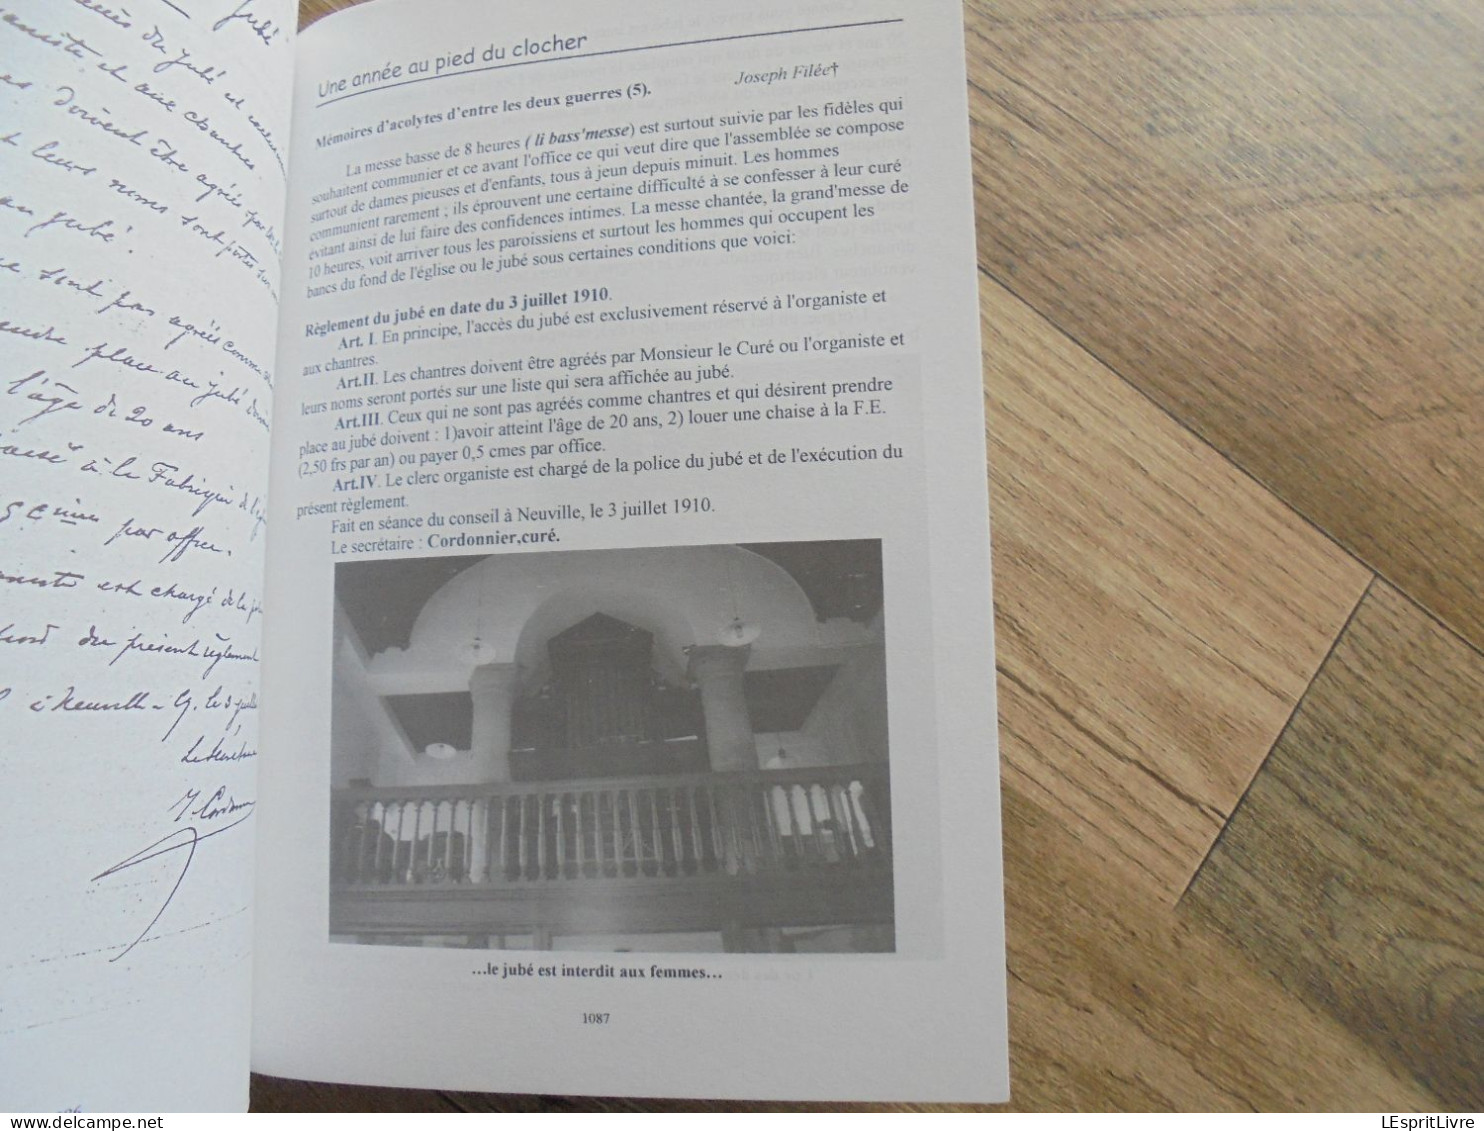 Jubé
cès du Jubé est
et aux chantres.
doivent être agréés par
leurs noms sont portés sur
au jubé.
ne sont pas agréés comme
place au jubé
l'âge de 20 ans
à la Fabrique de
par office.
est chargé de la
du présent règlement
à Neuville - le 3 juillet
Le Secrétaire
Une année au pied du clocher
Joseph Filée†
Mémoires d'acolytes d'entre les deux guerres (5).
La messe basse de 8 heures ( li bass'messe) est surtout suivie par les fidèles qui
souhaitent communier et ce avant l'office ce qui veut dire que l'assemblée se compose
surtout de dames pieuses et d'enfants, tous à jeun depuis minuit. Les hommes
communient rarement ; ils éprouvent une certaine difficulté à se confesser à leur curé
évitant ainsi de lui faire des confidences intimes. La messe chantée, la grand'messe de
10 heures, voit arriver tous les paroissiens et surtout les hommes qui occupent les
bancs du fond de l'église ou le jubé sous certaines conditions que voici:
Règlement du jubé en date du 3 juillet 1910.
Art. I. En principe, l'accès du jubé est exclusivement réservé à l'organiste et
aux chantres.
Art.II. Les chantres doivent être agréés par Monsieur le Curé ou l'organiste et
leurs noms seront portés sur une liste qui sera affichée au jubé.
Art.III. Ceux qui ne sont pas agréés comme chantres et qui désirent prendre
place au jubé doivent : 1)avoir atteint l'âge de 20 ans, 2) louer une chaise à la F.E.
(2,50 frs par an) ou payer 0,5 cmes par office.
Art.IV. Le clerc organiste est chargé de la police du jubé et de l'exécution du
présent règlement.
Fait en séance du conseil à Neuville, le 3 juillet 1910.
Le secrétaire : Cordonnier,curé.
...le jubé est interdit aux femmes...
1087
delcampe.net
LEspritLivre